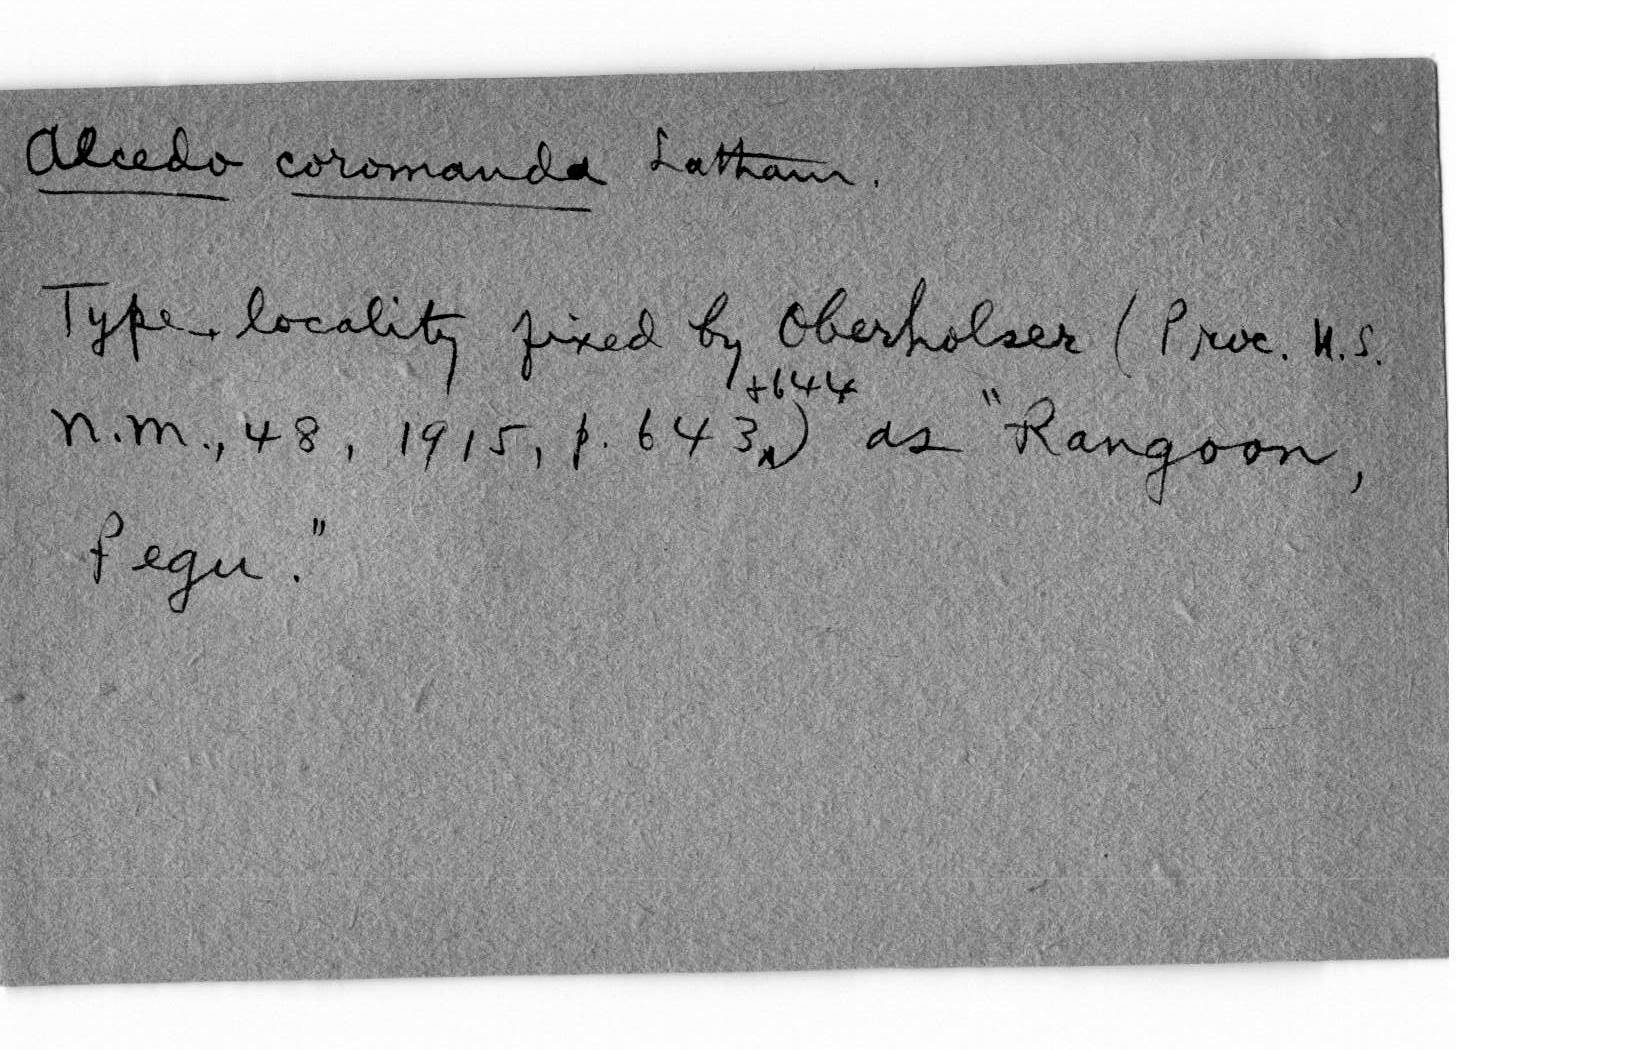 Alcedo coromanda Latham.
Type-locality fixed by Oberholser (Proc. U.S.
N.M., 48, 1915, p. 643 +644) as "Rangoon,
Pegu."